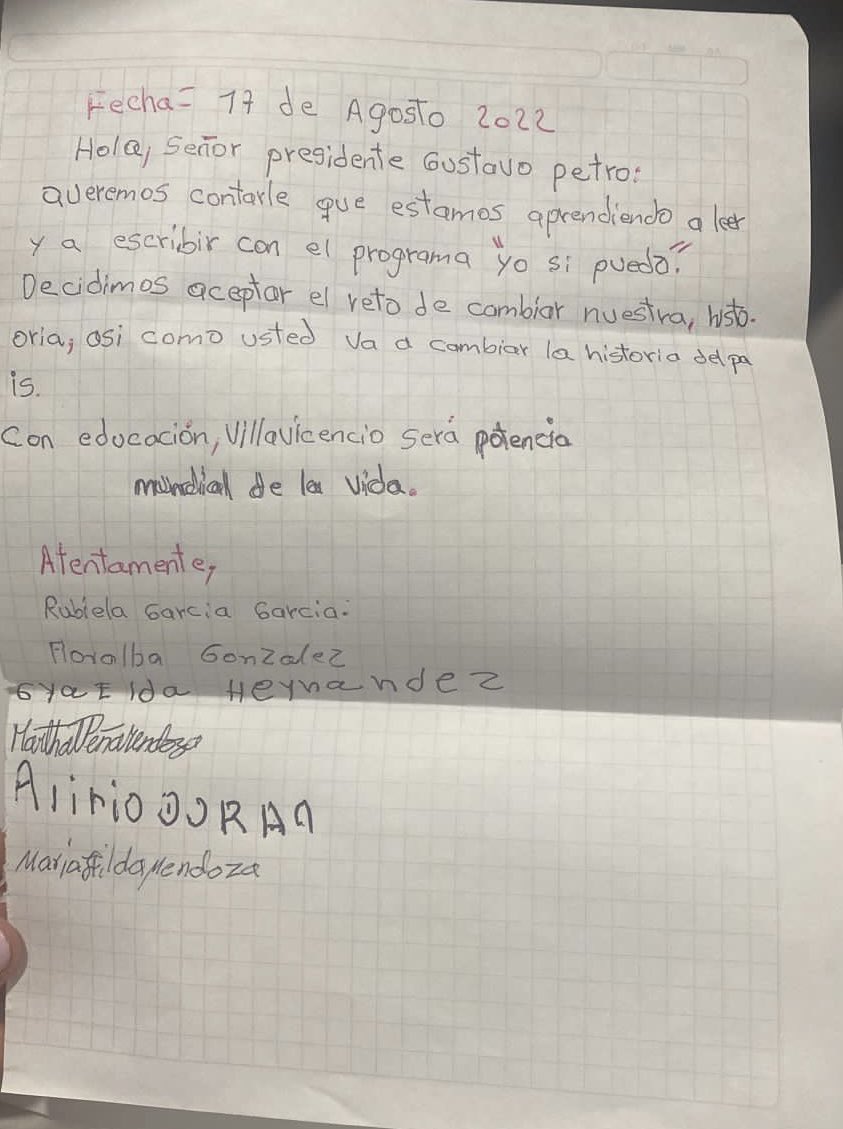 Fecha= 17 de Agosto 2022
Hola, Señor presidente Gustavo petro:
queremos contarle que estamos aprendiendo a leer
y a escribir con el programa "yo si puedo".
Decidimos aceptar el reto de cambiar nuestra, histo-
oria, asi como usted va a cambiar la historia del pa
is.
Con educación, Villavicencio será potencia
mundial de la vida.
Atentamente,
Rubiela Garcia Garcia.
Floralba Gonzalez
Hernandez
Martha Peña Mendoza
Alirio DURAN
Maria Mendoza